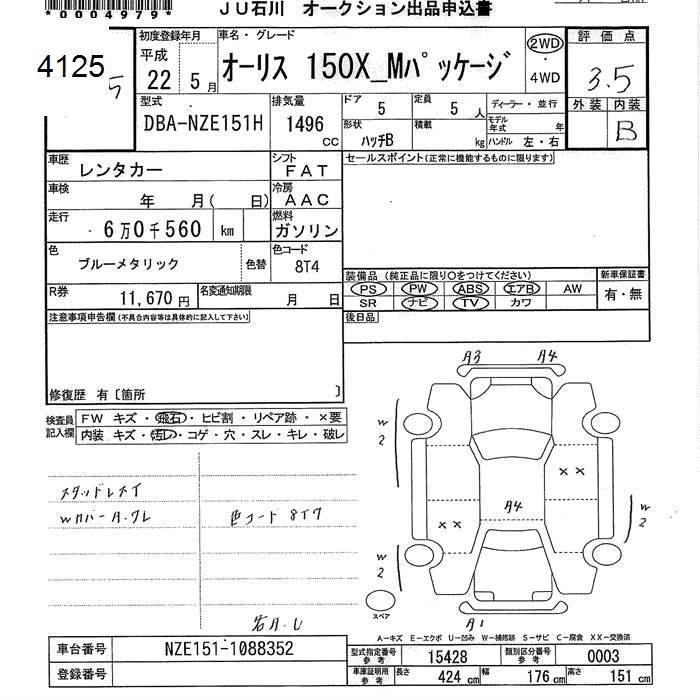 *0004979*
JU石川 オークション出品申込書
4125
5
初度登録年月
平成
22 5月
車名・グレード
オーリス 150X_Mパッケージ
2WD
・
4WD
評価点
3.5
外装 内装
B
型式
DBA-NZE151H
排気量
1496
CC
ドア 5
定員 5人
ディーラー・並行
形状 ハッチB
積載 kg
モデル年式 年
ハンドル 左・右
車歴 レンタカー
シフト FAT
セールスポイント(正常に機能するものに限ります)
車検 年 月( 日)
冷房 AAC
走行 6万0千560 km
燃料 ガソリン
色 ブルーメタリック
色替
色コード 8T4
装備品 (純正品に限り○をつけてください)
新車保証書
PS PW ABS エアB AW
有・無
SR ナビ TV カワ
R券 11,670円
名変通知期限 月 日
後日品
注意事項申告欄(不具合内容等は具体的に記入して下さい)
修復歴 有〔箇所 〕
検査員記入欄
FW キズ・飛石・ヒビ割・リペア跡・×要
内装 キズ・汚レ・コゲ・穴・スレ・キレ・破レ
A3 A4
W2
××
A4
W2
××
W2
A1
スペア
スタッドレスイ
Wカバー A.ワレ
色コード 8T7
A-キズ E-エクボ U-凹み W-補修跡 S-サビ C-腐食 XX-交換済
車台番号 NZE151-1088352
登録番号
型式指定番号参考 15428
類別区分番号参考 0003
車庫証明用参考
長さ 424cm
幅 176cm
高さ 151cm